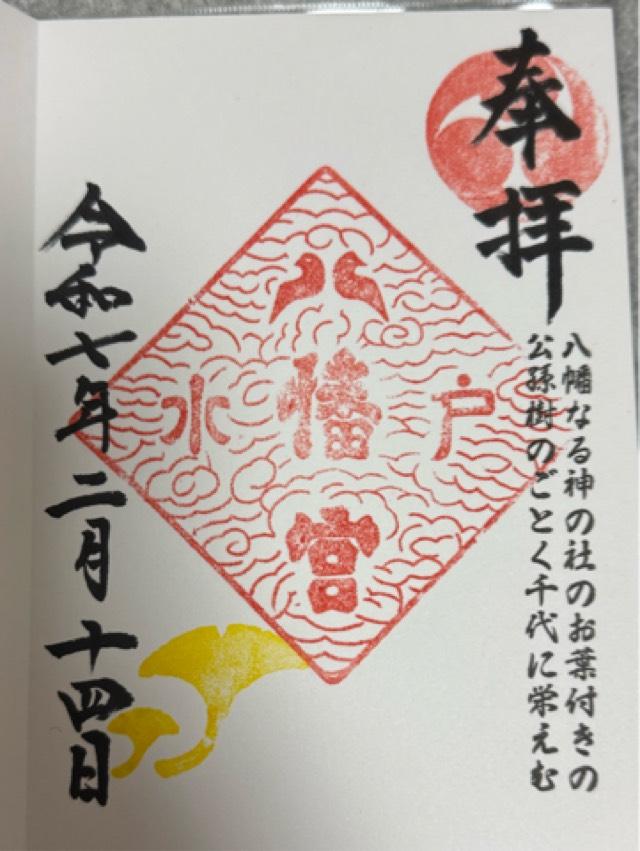 奉拝
八幡なる神の社のお葉付きの
公孫樹のごとく千代に栄えむ
水戸
八幡宮
令和七年二月十四日